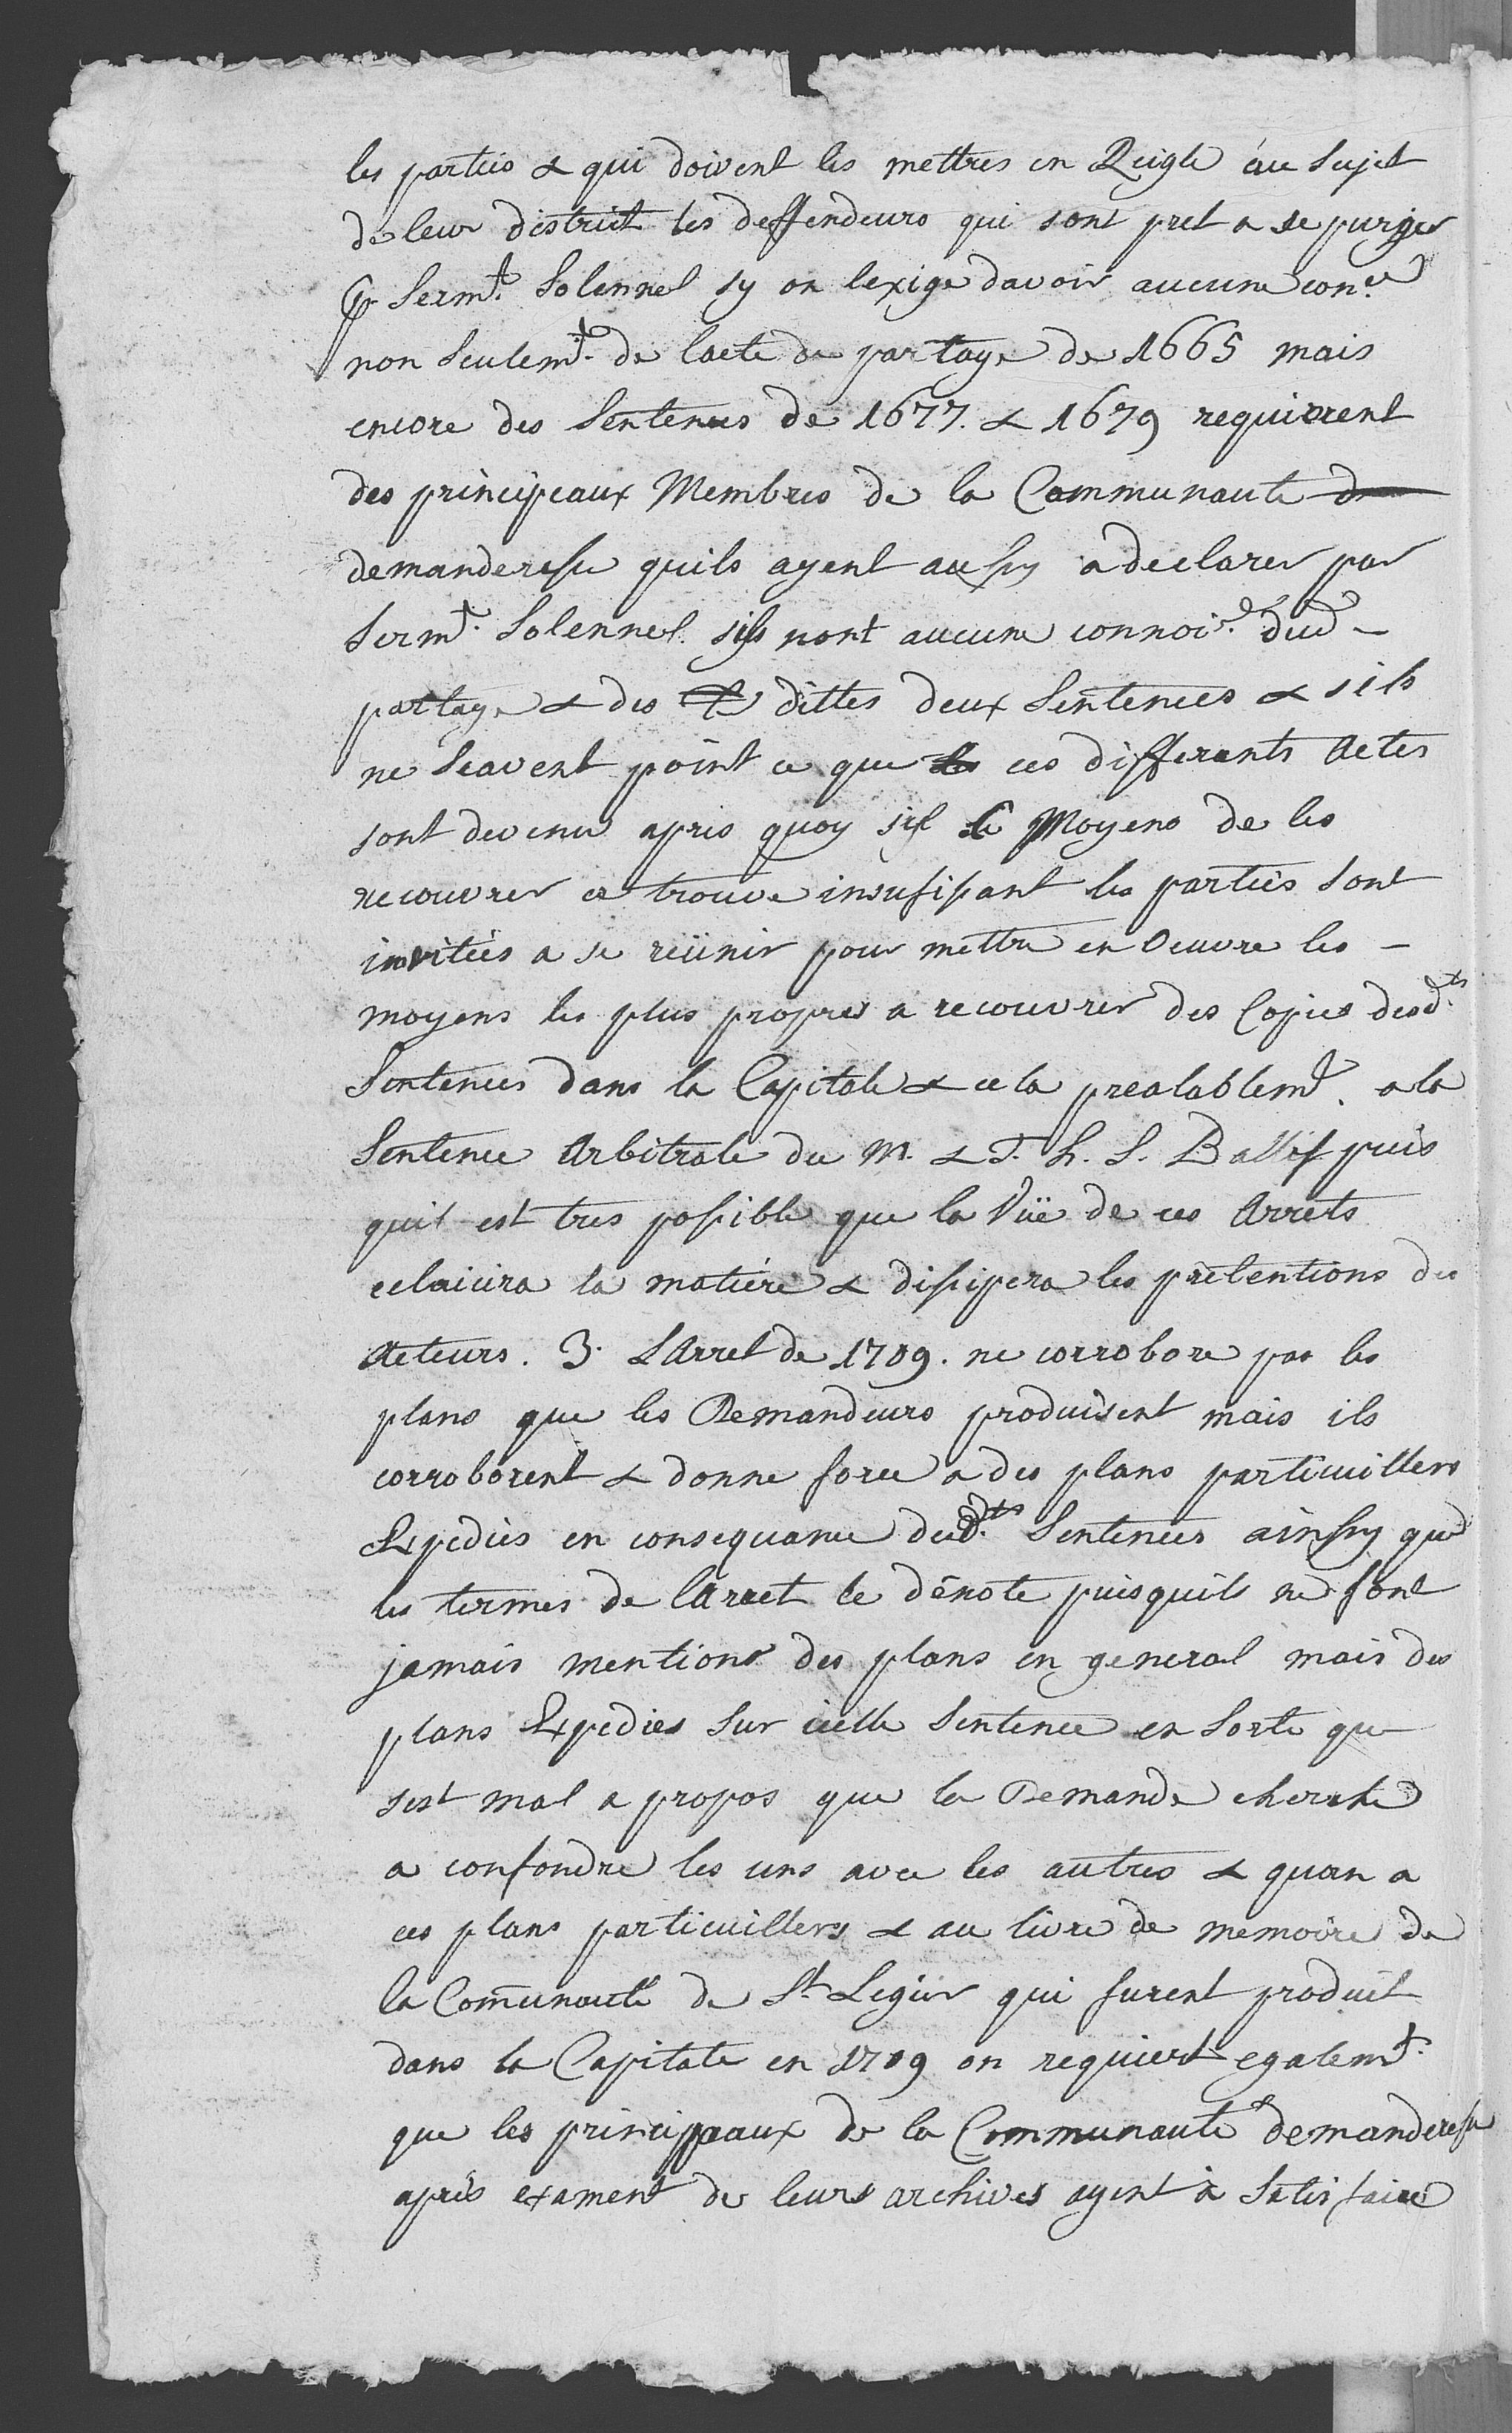 les parties & qui doivent les mettres en Reigle au sujet
de leur district les deffendeurs qui sont pret a se purger
p Serm.t Solennel sy on lexige davoir aucune con.ce
non seulem.t de lacte de partage de 1665 mais
encore des Sentences de 1677. & 1679 requierent
des principeaux Membres de la Communaute
demanderesse quils ayent aussy a declarer par
Serm.t Solennel sils nont aucune connois.ce dud
partage & des dittes deux Sentences & sils
ne Scavent point ce que ces differents Actes
sont devenu apres quoy sif le Moyens de les
recouvrer ce trouve insufisant les parties sont
invitées a se reünir pour mettre en Oeuvre les -
moyens les plus propres a recouvrer des Copies desd.ts
Sentences dans la Capitale & cela prealablem.t a la
Sentence Arbitrale du M. & T. h. S. Ballif puis
quil est tres possible que la Vüe de ces Arrets
eclaicira la matiére & dissipera les prétentions des
Acteurs. 3. LArret de 1709. ne corrobore pas les
plans que les Demandeurs produisent mais ils
corroborent & donne force a des plans particuillers
Expediés en consequance desd.tes Sentences ainssy que
les termes de lArret le dénote puisquils ne font
jamais mentions des plans en general mais des
plans Expedies sur icelle Sentence en Sorte que
sest mal a propos que la Demande cherche
a confondre les uns avec les autres & quan a
ces plans particuillers & au livre de memoire de
la Com̃unauté de St. Legier qui furent produit
dans la Capitale en 1709 on requiert egalem.t
que les principeaux de la Communauté demanderesse
après exament de leurs archives ayent à Satisfaire